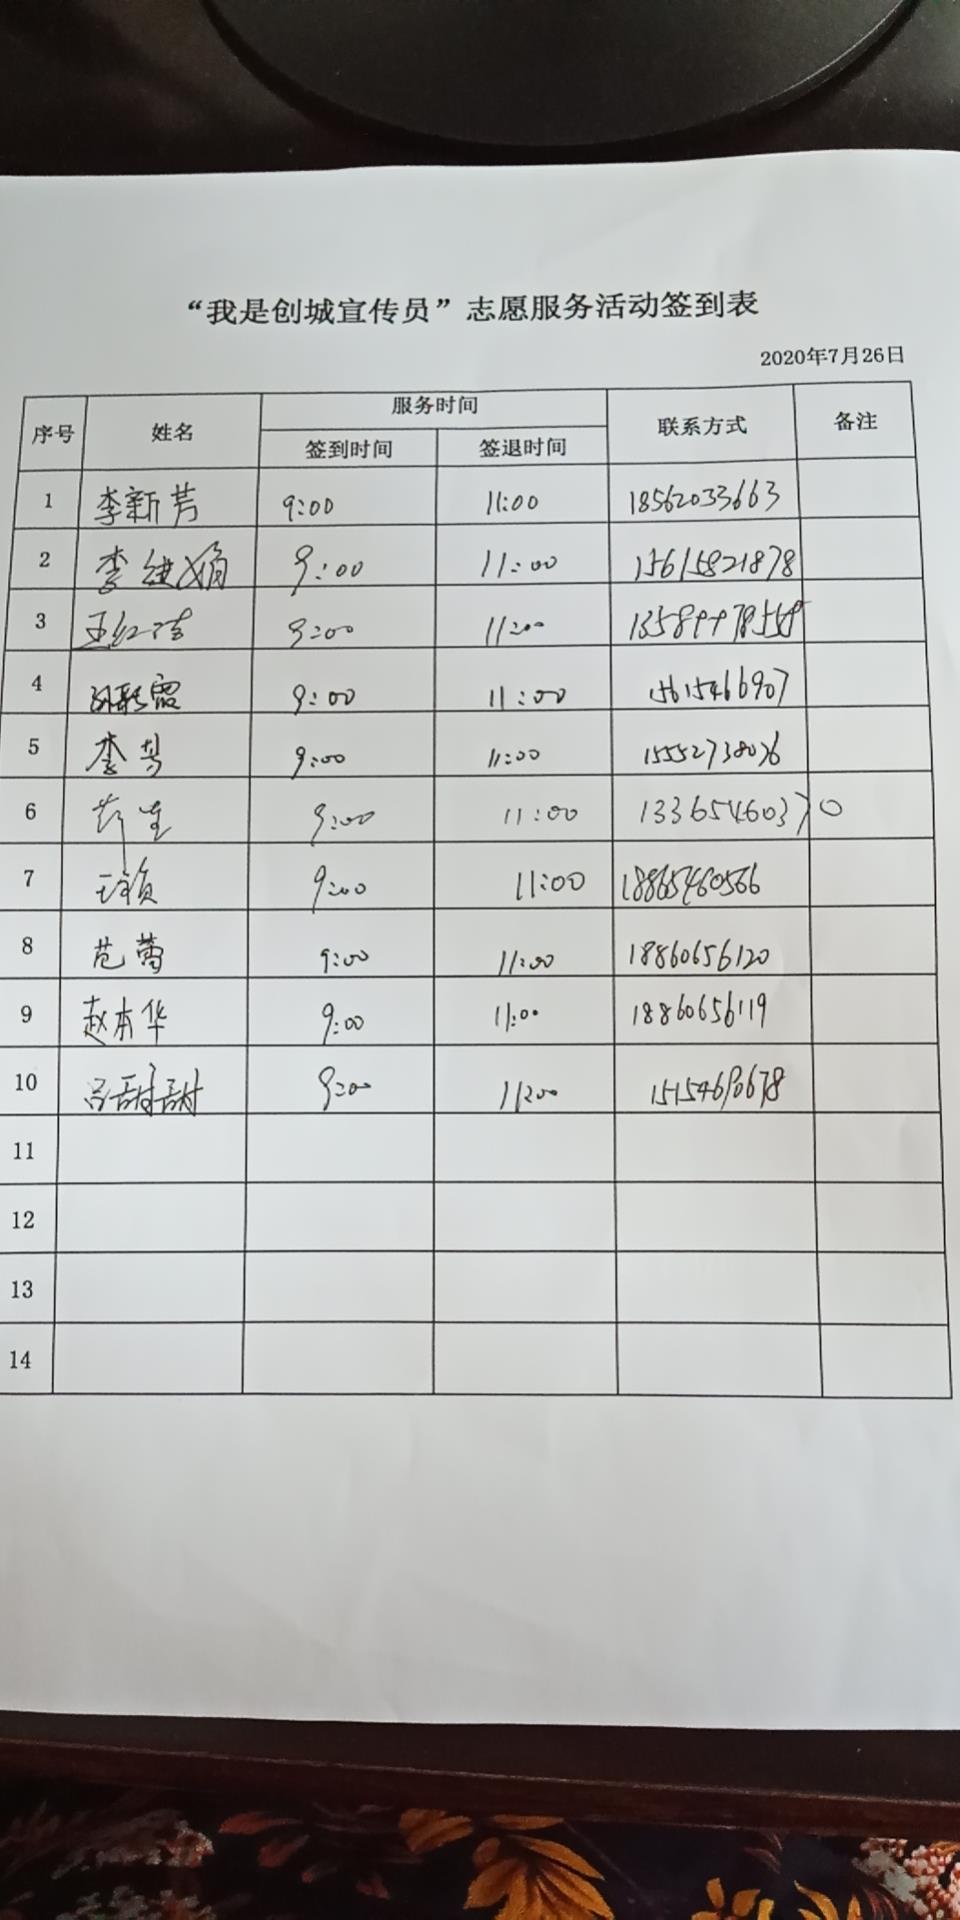 “我是创城宣传员”志愿服务活动签到表
2020年7月26日
序号 姓名 服务时间 联系方式 备注
签到时间 签退时间
1 李新芳 9:00 11:00 18562033663
2 李 娟 9:00 11:00 15615821878
3 王红洁 9:00 11:00
4 霞 9:00 11:00 15615466907
5 李芳 9:00 11:00 15552738026
6 9:00 11:00 13365460370
7 9:00 11:00 18865460566
8 范蕾 9:00 11:00 18860656120
9 赵本华 9:00 11:00 18860656119
10 吕甜甜 9:00 11:00
11
12
13
14